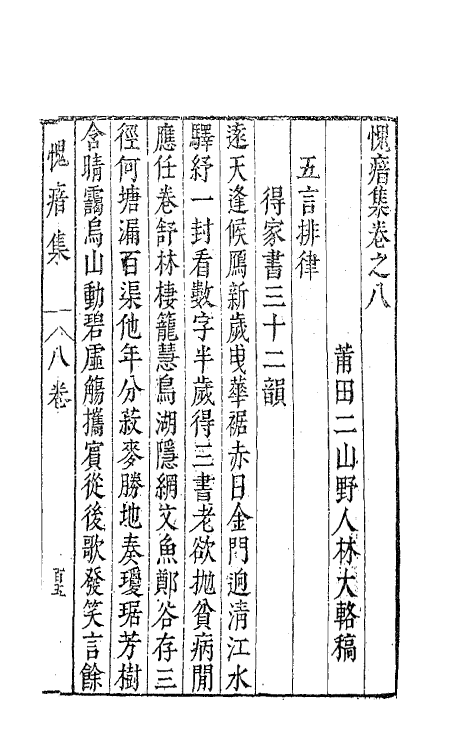 愧瘖集卷之八
莆田二山野人林大輅稿
五言排律
得家書三十二韻
遠天逢候鴈新歲曳華裾赤日金門逈清江水
驛紓一封看數字半歲得三書老欲拋貧病閒
應任卷舒林棲籠慧鳥湖隱網文魚鄭谷存三
徑何塘漏百渠他年分菽麥勝地奏瓊琚芳樹
含晴靄烏山動碧虛觴攜賓從後歌發笑言餘
愧瘖集
八卷